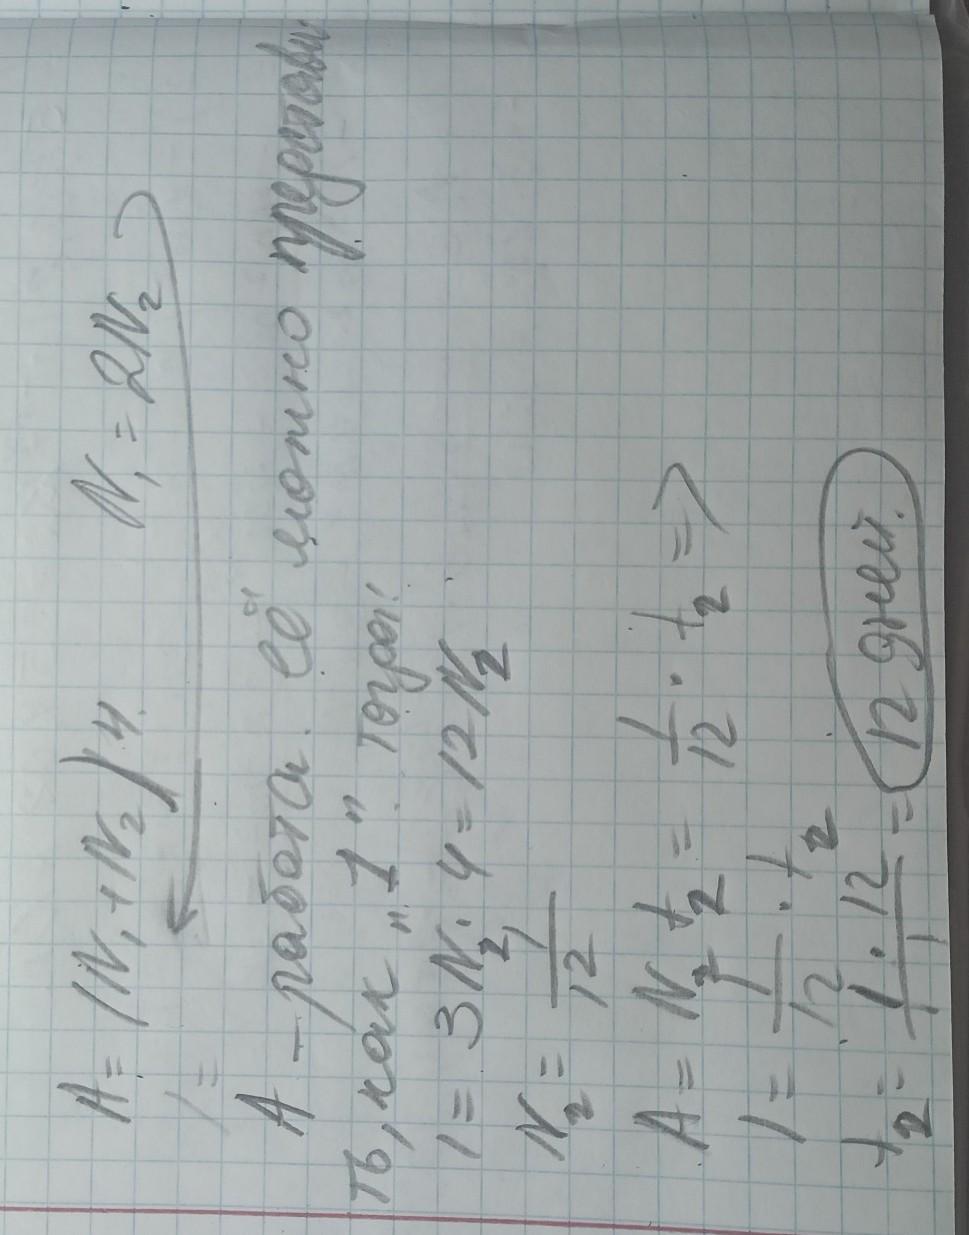 A = (N₁ + N₂) 4. N₁ = 2N₂
1 =
A – работа. Её можно представи
ть, как "1". тогда:
1 = 3N₂ · 4 = 12N₂
N₂ = 1/12
A = N₂ t₂ = 1/12 · t₂ =>
1 = 1/12 · t₂
t₂ = 1 · 12/1 = 12 дней.